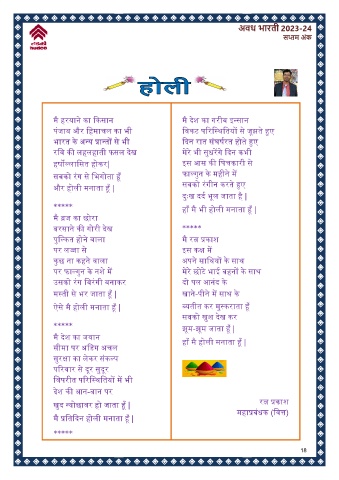 अवध भारती 2023-24
सप्तम अंक
हडको
hudco
होली
मै हरयाने का किसान
पंजाब और हिमाचल का भी
भारत के अन्य प्रान्तों से भी
रबि की लहलहाती फसल देख
हर्षोल्लासित होकर|
सबको रंग से भिगोता हूँ
और होली मनाता हूँ |
*****
मै ब्रज का छोरा
बरसाने की गोरी देख
पुल्कित होने वाला
पर लज्जा से
कुछ ना कहने वाला
पर फाल्गुन के नशे में
उसको रंग बिरंगी बनाकर
मस्ती से भर जाता हूँ |
ऐसे मै होली मनाता हूँ |
*****
मै देश का जवान
सीमा पर अडिग अचल
सुरक्षा का लेकर संकल्प
परिवार से दूर सुदूर
विपरीत परिस्थितियों में भी
देश की आन-बान पर
खुद न्योछावर हो जाता हूँ |
मै प्रतिदिन होली मनाता हूँ |
*****
मै देश का गरीब इन्सान
विकट परिस्थितियों से जूझते हुए
दिन रात संघर्षरत होते हुए
मेरे भी सुधरेंगे दिन कभी
इस आस की पिचकारी से
फाल्गुन के महीने में
सबको रंगीन करते हुए
दुःख दर्द भूल जाता है |
हाँ मै भी होली मनाता हूँ |
*****
मै रत्न प्रकाश
इस कक्ष में
अपने साथियों के साथ
मेरे छोटे भाई बहनों के साथ
दो पल आनंद के
खाते-पीते में साथ के
व्यतीत कर मुस्कराता हूँ
सबको खुश देख कर
झूम-झूम जाता हूँ |
हाँ मै होली मनाता हूँ |
रत्न प्रकाश
महाप्रबंधक (वित्त)
18